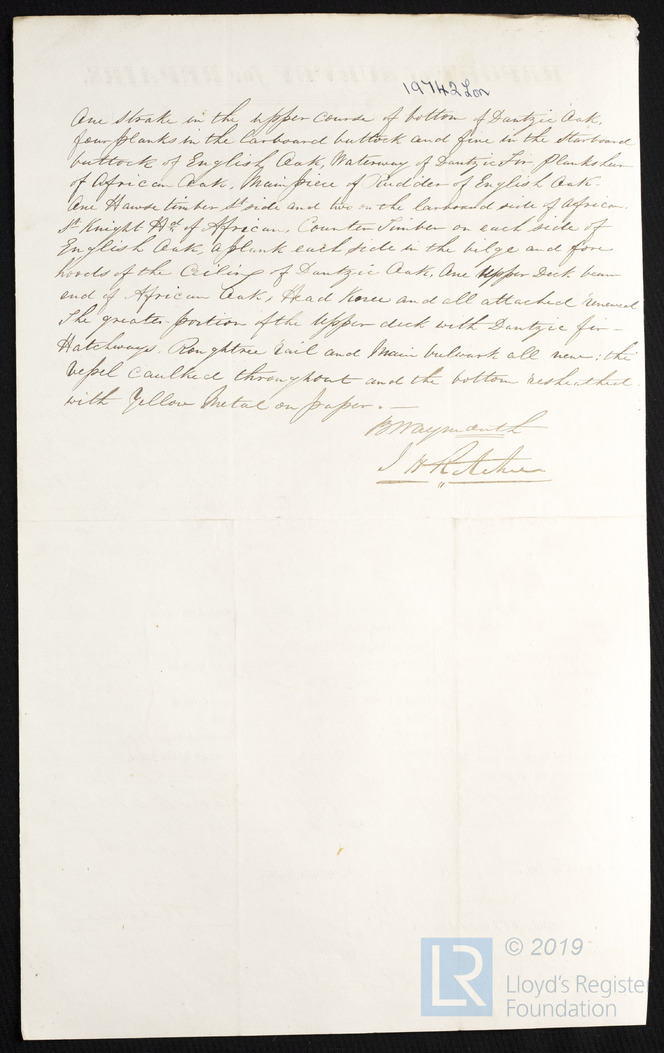 19742 Lon
One strake in the upper course of bottom of Dantzic Oak,
four planks in the larboard buttock and five in the starboard
buttock of English Oak, Waterway of Dantzic Fir Plankshear
of African Oak, Main piece of Rudder of English Oak.
One Hawse timber St side and two on the larboard side of African,
St Knight Hd of African, Counter Timber on each side of
English Oak, a plank each side in the bilge and fore
hoods of the Ceiling of Dantzic Oak, One Upper Deck beam
end of African Oak, Head Knee and all attached renewed
The greater portion of the Upper deck with Dantzic fir —
Hatchways. Roughtree rail and Main bulwark all new; the
Vessel caulked throughout and the bottom resheathed
with Yellow Metal on paper. —
B Waymouth
J H Ritchie
© 2019
LR
Lloyd's Register
Foundation